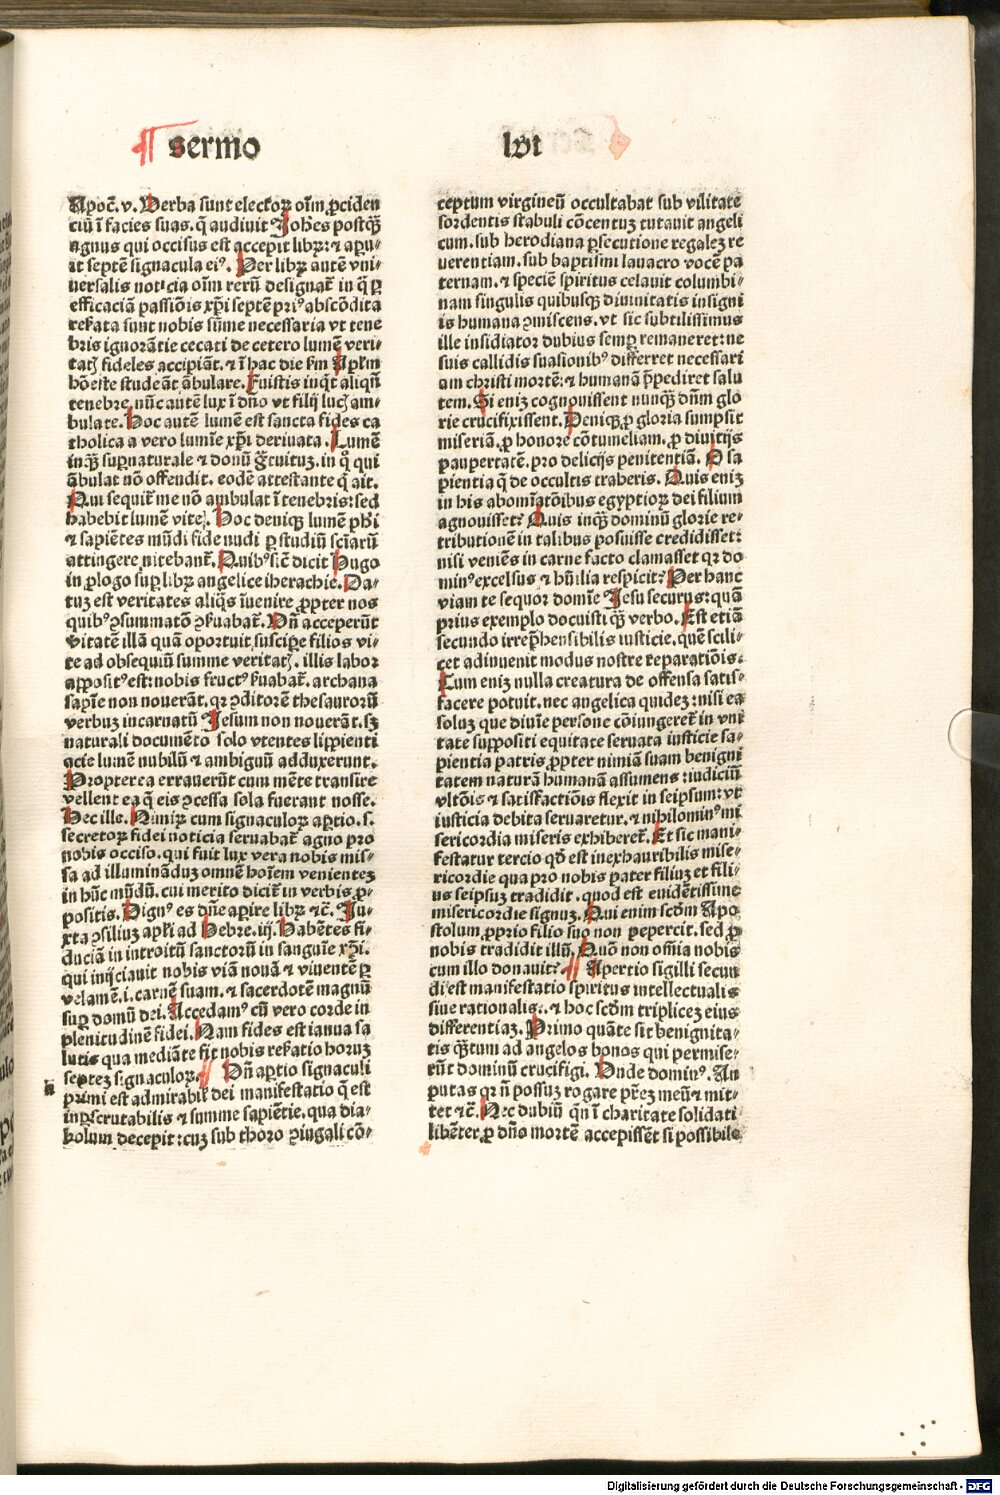 sermo
lvi
Apoc̄. v. Verba sunt electoꝝ oīm ꝓciden
ciū ī facies suas. q̄ audiuit Joh̄es postq̄ꝫ
agnus qui occisus est accepit libꝝ: ⁊ aꝑu-
it septē signacula eiꝰ. Per libꝝ autē vni-
uersalis noticia oīm rerū designat̄ in q̄ ꝑ
efficaciā passiōis xp̄i septē priꝰ abscōdita
reẜata sunt nobis sūme necessaria vt tene
bris ignorātie cecati de cetero lumē veri-
tatꝭ fideles accipiāt. ⁊ ī hac die ẜm Apl̄m
hōeste studeāt ābulare. Fuistis inq̄t aliqn̄
tenebre. nūc autē lux ī dn̄o vt filij lucꝭ am-
bulate. Hoc autē lumē est sancta fides ca
tholica a vero lumīe xp̄i deriuata. Lumē
inq̄ꝫ suꝑnaturale ⁊ donū gr̄tuitꝫ. in qͦ qui
ābulat nō offendit. eodē attestante q̄ ait.
Qui sequit̄ me nō ambulat ī tenebris: sed
habebit lumē vite. Hoc deniqꝫ lumē ph̄i
⁊ sapiētes mūdi fide nudi ꝑ studiū sciarū
attingere nitebant̄. Quibꝰ sic̄ dicit Hugo
in ꝓlogo suꝑ libꝝ angelice iherachie. Da-
tuꝫ est veritates aliq̄s īuenire ꝓpter nos
quibꝰ ꝯsummatō ꝯẜuabat̄. Nō acceperūt
v̄itatē illā quā oportuit suscipe filios vi-
te ad obsequiū summe veritatꝭ. illis labor
appositꝰ est: nobis fructꝰ ẜuabat̄. archana
sapīe non nouerāt. qꝛ ꝯditorē thesaurorū
verbuꝫ incarnatū Jesum non nouerāt. sꝫ
naturali documēto solo vtentes lippienti
acie lumē nubilū ⁊ ambiguū adduxerunt.
Propterea errauerūt cum mēte transire
vellent ea q̄ eis ꝯcessa sola fuerant nosse.
Hec ille. Nimiꝝ cum signaculoꝝ aꝑtio. s.
secretoꝝ fidei noticia seruabat̄ agno pro
nobis occiso. qui fuit lux vera nobis mis-
sa ad illumināduꝫ omnē hoīem venienteꝫ
in hūc mūdū. cui merito dicit̄ in verbis ꝓ-
positis. Dignꝰ es dn̄e aperire libꝝ ⁊c̄. Ju-
xta ꝯsiliuꝫ apl̄i ad Hebre. iij. Habētes fi-
duciā in introitū sanctorū in sanguīe xp̄i.
qui inījciauit nobis viā nouā ⁊ viuentē ꝑ
velamē. i. carnē suam. ⁊ sacerdotē magnū
suꝑ domū dei. Accedamꝰ cū vero corde in
plenitudinē fidei. Nam fides est ianua sa
lutis qua mediāte fit nobis reẜatio horuꝫ
septeꝫ signaculoꝝ. Dn̄ aꝑtio signaculi
primi est admirabil̄ dei manifestatio q̄ est
inꝑscrutabilis ⁊ summe sapiētie. qua dia-
bolum decepit: cuꝫ sub thoro ꝯiugali cō-
ceptum virgineū occultabat sub vilitate
sordentis stabuli cōcentuꝫ tutauit angeli
cum. sub herodiana ꝑsecutione regaleꝫ re
uerentiam. sub baptismi lauacro vocē pa
ternam. ⁊ speciē spiritus celauit columbi-
nam singulis quibusqꝫ diuinitatis insigni
is humana ꝯmiscens. vt sic subtilissimus
ille insidiator dubius semꝑ remaneret: ne
suis callidis suasionibꝰ differret necessari
am christi mortē: ⁊ humanā p̄pediret salu
tem. Si eniꝫ cognouissent nunqꝫ dn̄m glo
rie crucifixissent. Deniqꝫ ꝓ gloria sumpsit
miseriā. ꝓ honore cōtumeliam. ꝓ diuitijs
paupertatē. pro delicijs penitentiā. O sa
pientia q̄ de occultis traheris. Quis eniꝫ
in his abomīatōibus egyptioꝝ dei filium
agnouisset? Quis inqꝫ dominū glorie re-
tributionē in talibus posuisse credidisset:
nisi veniēs in carne facto clamasset qꝛ do
minꝰ excelsus ⁊ hūilia respicit? Per hanc
viam te sequor domīe Jesu securus: quā
prius exemplo docuisti qꝫ verbo. Est etiā
secundo irrep̄hensibilis iusticie. quē scili-
cet adinuenit modus nostre reparatiōis.
Cum eniꝫ nulla creatura de offensa satis-
facere potuit. nec angelica quideꝫ: nisi ea
soluꝫ que diuīe persone cōiungeret̄ in vni
tate suppositi equitate seruata iusticie sa-
pientia patris ꝓpter nimiā suam benigni
tatem naturā humanā assumens: iudiciū
vltōis ⁊ satisfactiōis flexit in seipsum: vt
iusticia debita seruaretur. ⁊ nihilominꝰ mi
sericordia miseris exhiberet̄. Et sic mani-
festatur tercio qd̄ est inexhauribilis mise-
ricordie qua pro nobis pater filiuꝫ et fili-
us seipsuꝫ tradidit. quod est euidētissime
misericordie signuꝫ. Qui enim scd̄m Apo
stolum. ꝓprio filio suo non pepercit. sed ꝓ
nobis tradidit illū. Quō non om̄ia nobis
cum illo donauit? Apertio sigilli secun
di est manifestatio spiritus intellectualis
siue rationalis. ⁊ hoc scd̄m tripliceꝫ eius
differentiaꝫ. Primo quāte sit benignita-
tis q̄ꝫtum ad angelos bonos qui permise-
rūt dominū crucifigi. Vnde dominꝰ. An
putas qꝛ nō possuꝫ rogare pr̄eꝫ meū ⁊ mit-
tet ⁊c̄. Nec dubiū qn̄ ī charitate solidati
libēter ꝓ dn̄o mortē accepissēt si possibile
Digitalisierung gefördert durch die Deutsche Forschungsgemeinschaft - DFG